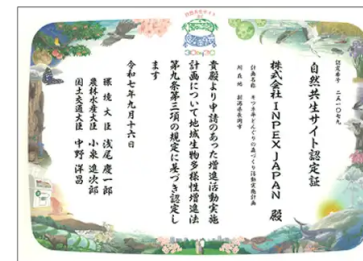 自然共生サイト認定証
株式会社INPEX JAPAN 殿
貴殿より申請のあった増進活動実施
計画について地域生物多様性増進法
第九条第三項の規定に基づき認定し
ます
令和七年九月十六日
環境大臣 浅尾慶一郎
農林水産大臣 小泉進次郎
国土交通大臣 中野洋昌